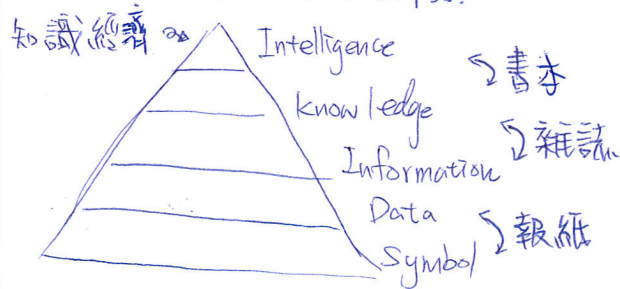 知識經濟 Intelligence
書本
knowledge
雜誌
Information
Data
報紙
Symbol